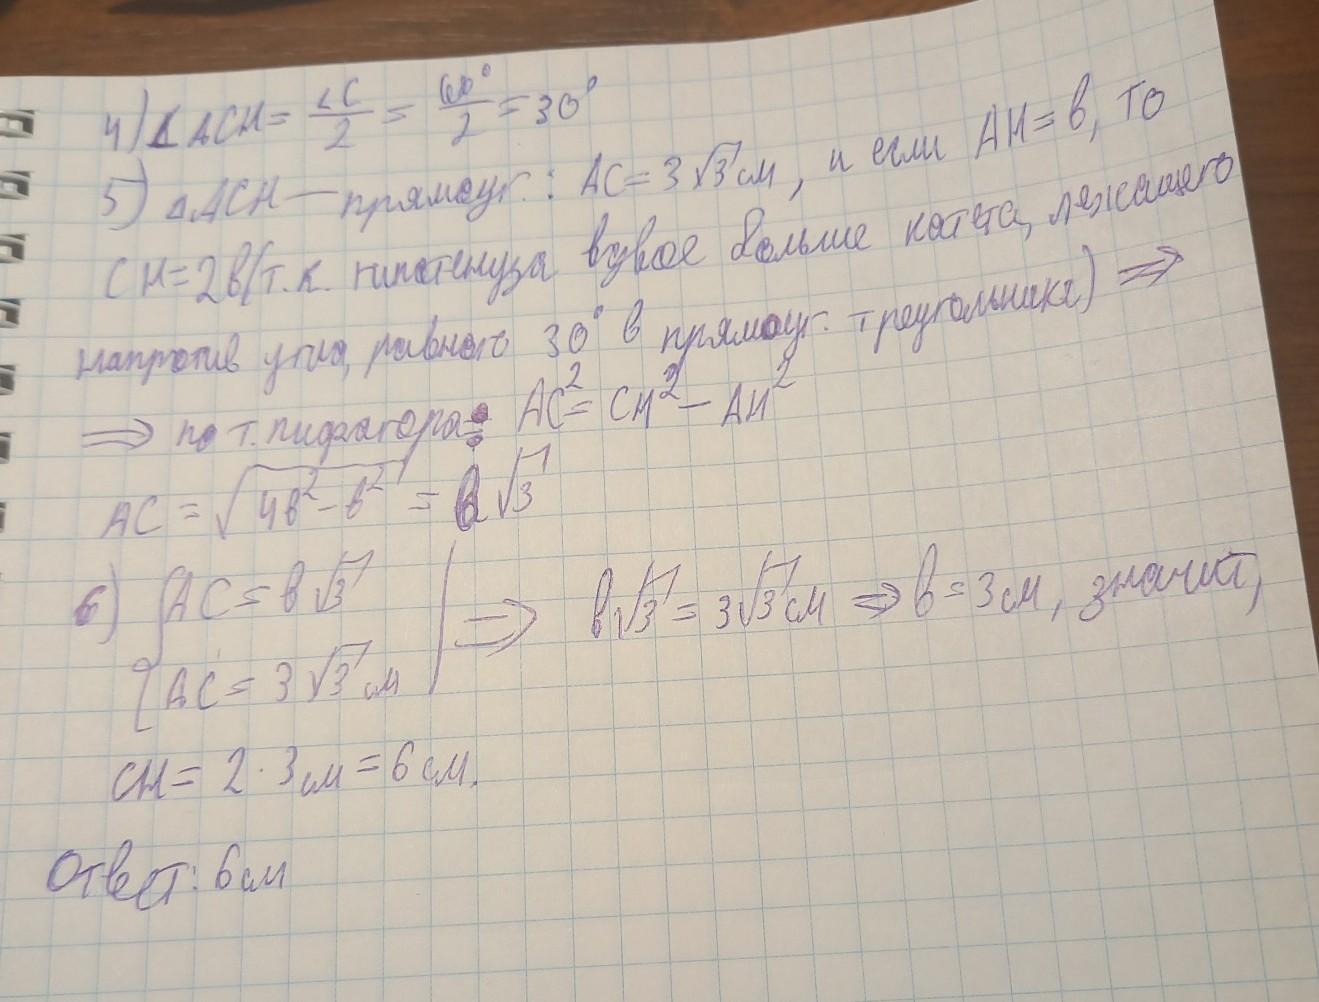 4) ∠ACH = ∠C/2 = 60°/2 = 30°
5) △ACH — прямоуг.: AC = 3√3 см, и если AH = в, то
CH = 2в (т.к. гипотенуза вдвое больше катета, лежащего
напротив угла, равного 30° в прямоуг. треугольнике) ⇒
⇒ по т. пифагора: AC² = CH² − AH²
AC = √(4в² − в²) = в√3
6) { AC = в√3
{ AC = 3√3 см | ⇒ в√3 = 3√3 см ⇒ в = 3 см, значит,
CH = 2 · 3 см = 6 см.
Ответ: 6 см